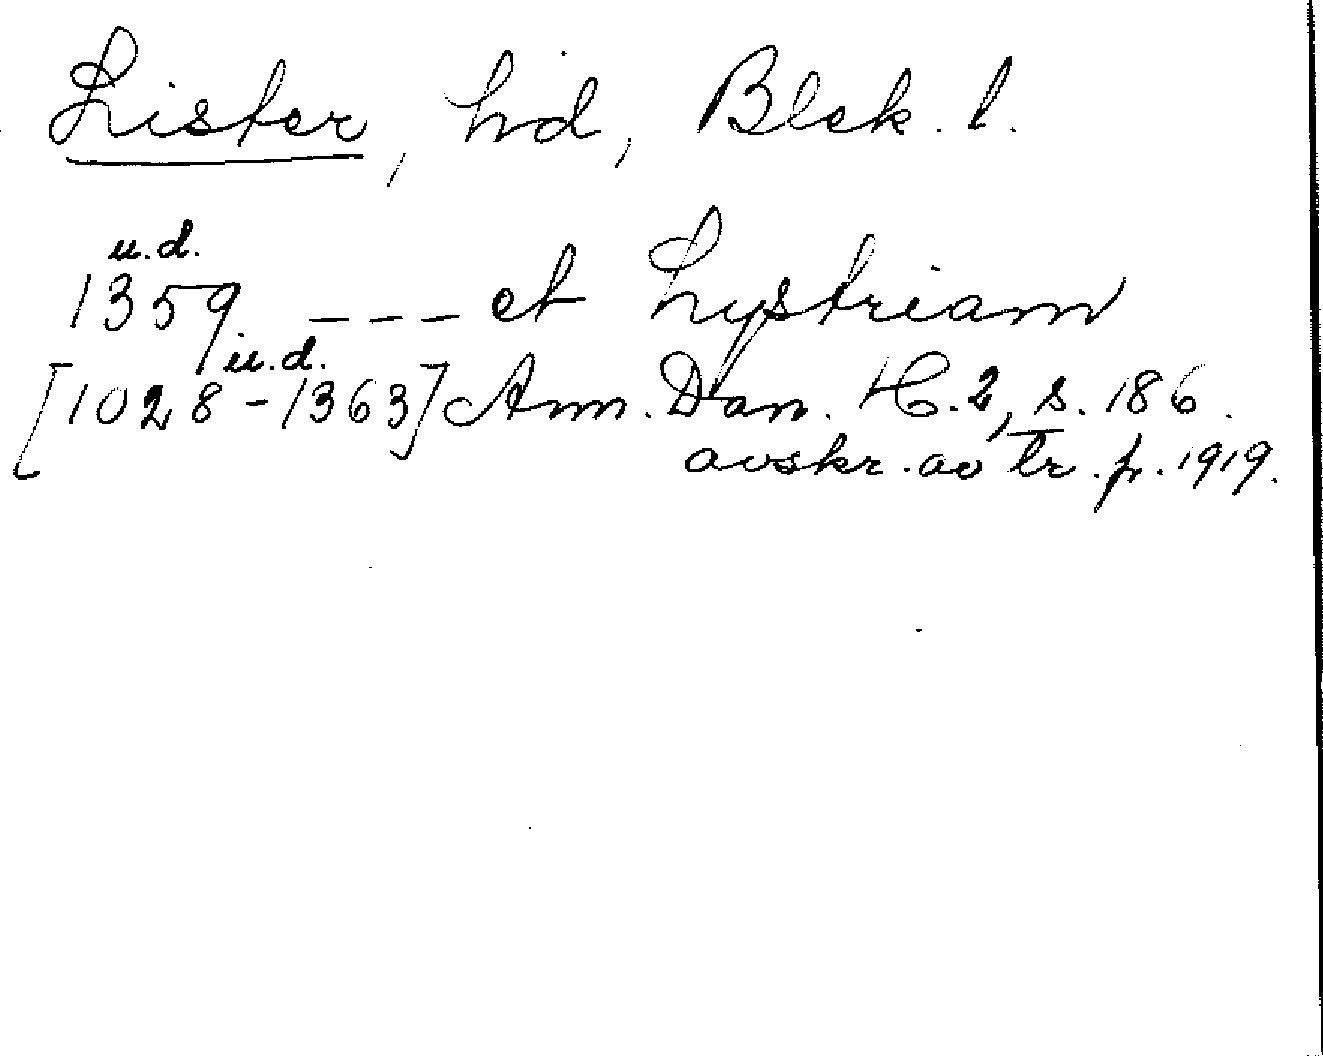 Lister, hd, Blek. l.
u.d.
1359. - - - et Lystriam
u.d.
[1028-1363] Ann. Dan. H. 2, s. 186.
avskr. av tr. fr. 1919.